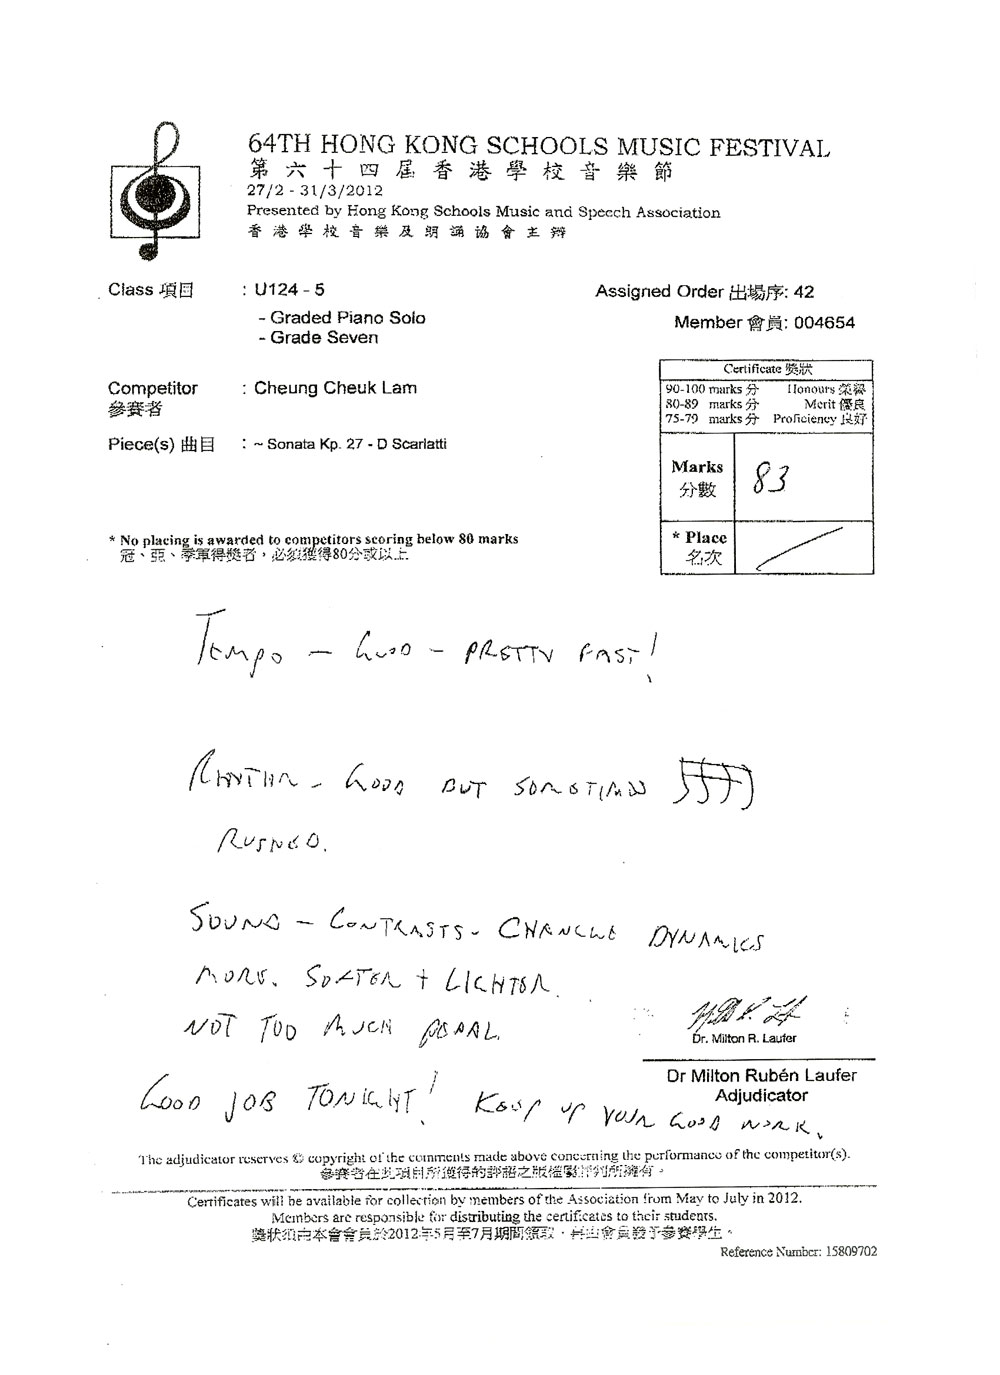 64TH HONG KONG SCHOOLS MUSIC FESTIVAL
第六十四屆香港學校音樂節
27/2 - 31/3/2012
Presented by Hong Kong Schools Music and Speech Association
香港學校音樂及朗誦協會主辦
Class 項目 : U124 - 5
Assigned Order 出場序: 42
- Graded Piano Solo
Member 會員: 004654
- Grade Seven
Certificate 獎狀
90-100 marks 分 Honours 榮譽
80-89 marks 分 Merit 優良
75-79 marks 分 Proficiency 良好
Competitor : Cheung Cheuk Lam
參賽者
Piece(s) 曲目 : ~ Sonata Kp. 27 - D Scarlatti
Marks 83
分數
* Place
名次
* No placing is awarded to competitors scoring below 80 marks
冠、亞、季軍得獎者，必須獲得80分或以上
TEMPO - GOOD - PRETTY FAST!
RHYTHM - GOOD BUT SOMETIMES
RUSHED.
SOUND - CONTRASTS - CHANGE DYNAMICS
MORE. SOFTER + LIGHTER.
NOT TOO MUCH PEDAL.
Dr. Milton R. Laufer
Dr Milton Rubén Laufer
Adjudicator
GOOD JOB TONIGHT! KEEP UP YOUR GOOD WORK.
The adjudicator reserves © copyright of the comments made above concerning the performance of the competitor(s).
參賽者在此項目所獲得的評語之版權屬評判所擁有。
Certificates will be available for collection by members of the Association from May to July in 2012.
Members are responsible for distributing the certificates to their students.
獎狀須由本會會員於2012年5月至7月期間領取，并由會員發予參賽學生。
Reference Number: 15809702